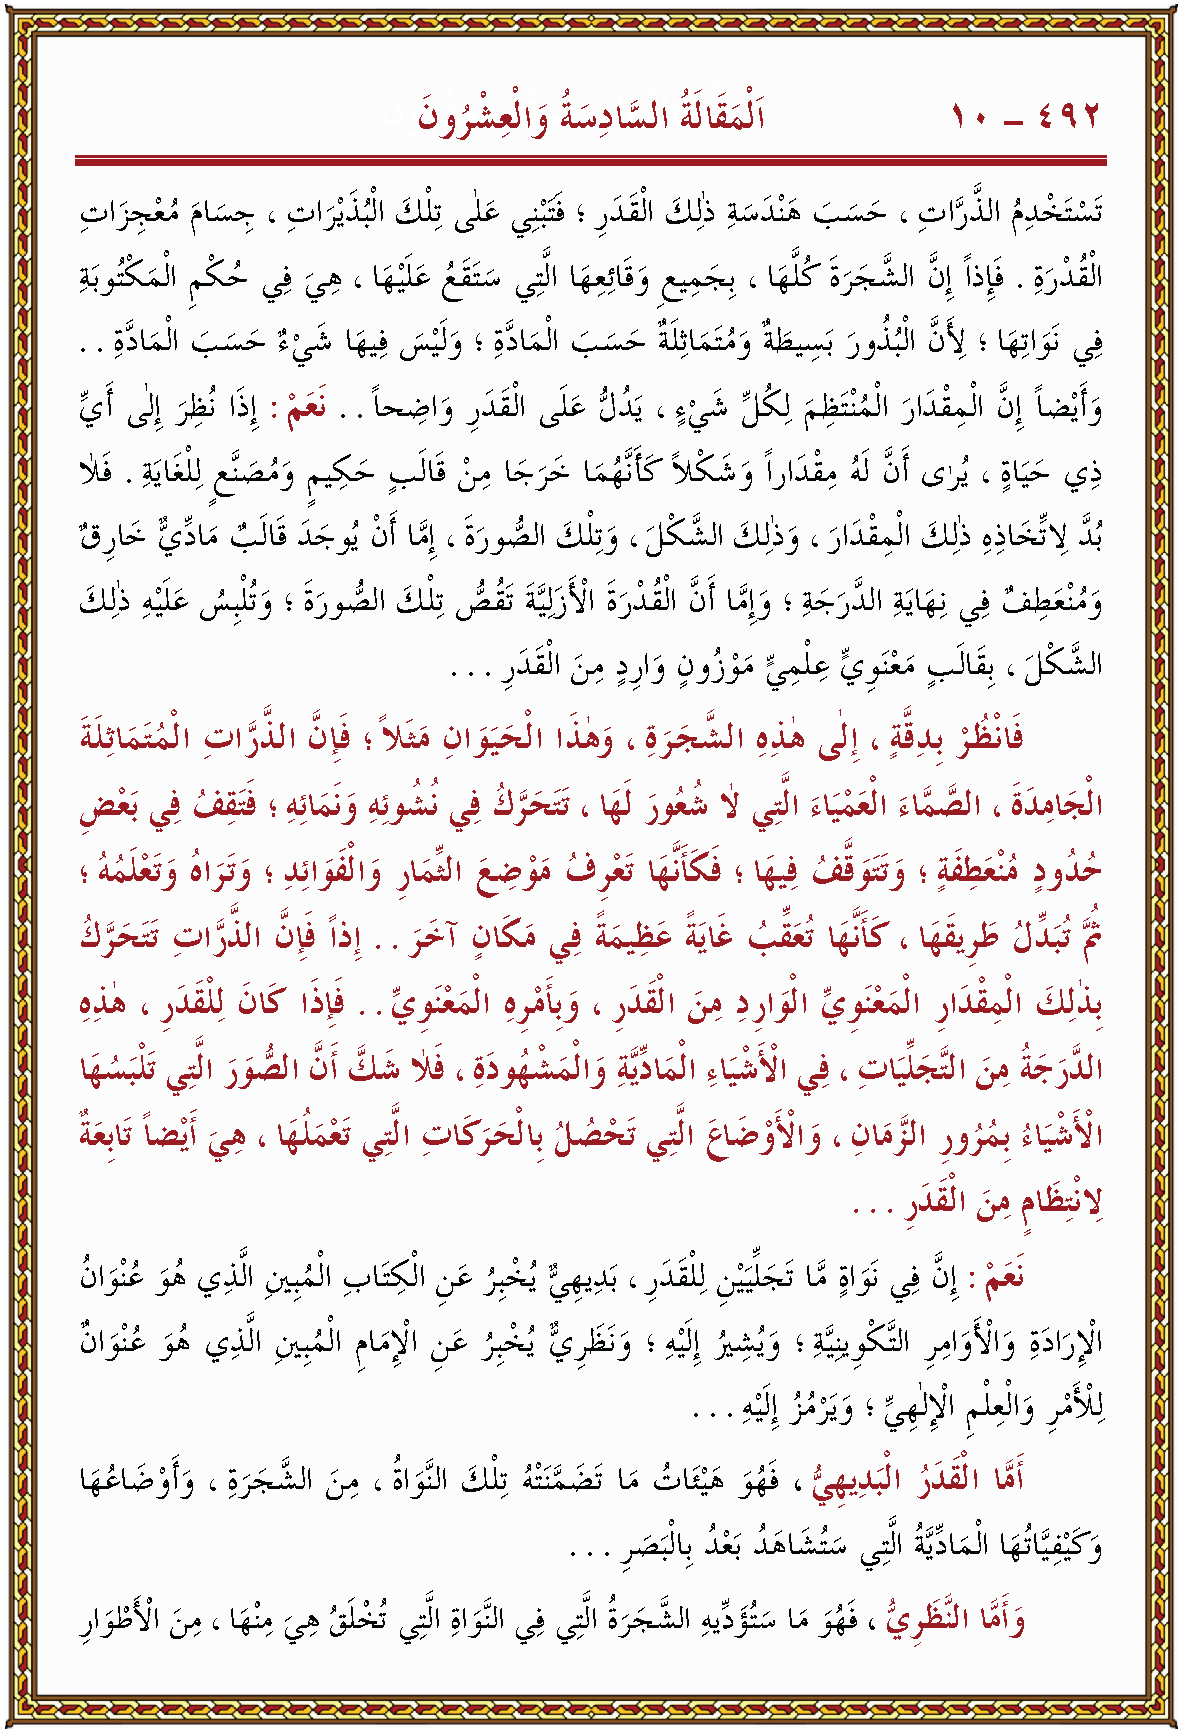 ٤٩٢ – ١٠ اَلْمَقَالَةُ السَّادِسَةُ وَالْعِشْرُونَ
تَسْتَخْدِمُ الذَّرَّاتِ ، حَسَبَ هَنْدَسَةِ ذٰلِكَ الْقَدَرِ ؛ فَتَبْنِي عَلٰى تِلْكَ الْبُذَيْرَاتِ ، جِسَامَ مُعْجِزَاتِ
الْقُدْرَةِ . فَإِذاً إِنَّ الشَّجَرَةَ كُلَّهَا ، بِجَمِيعِ وَقَائِعِهَا الَّتِي سَتَقَعُ عَلَيْهَا ، هِيَ فِي حُكْمِ الْمَكْتُوبَةِ
فِي نَوَاتِهَا ؛ لِأَنَّ الْبُذُورَ بَسِيطَةٌ وَمُتَمَاثِلَةٌ حَسَبَ الْمَادَّةِ ؛ وَلَيْسَ فِيهَا شَيْءٌ حَسَبَ الْمَادَّةِ . .
وَأَيْضاً إِنَّ الْمِقْدَارَ الْمُنْتَظِمَ لِكُلِّ شَيْءٍ ، يَدُلُّ عَلَى الْقَدَرِ وَاضِحاً . . نَعَمْ : إِذَا نُظِرَ إِلٰى أَيِّ
ذِي حَيَاةٍ ، يُرٰى أَنَّ لَهُ مِقْدَاراً وَشَكْلاً كَأَنَّهُمَا خَرَجَا مِنْ قَالَبٍ حَكِيمٍ وَمُصَنَّعٍ لِلْغَايَةِ . فَلَا
بُدَّ لِاتِّخَاذِهِ ذٰلِكَ الْمِقْدَارَ ، وَذٰلِكَ الشَّكْلَ ، وَتِلْكَ الصُّورَةَ ، إِمَّا أَنْ يُوجَدَ قَالَبٌ مَادِّيٌّ خَارِقٌ
وَمُنْعَطِفٌ فِي نِهَايَةِ الدَّرَجَةِ ؛ وَإِمَّا أَنَّ الْقُدْرَةَ الْأَزَلِيَّةَ تَقُصُّ تِلْكَ الصُّورَةَ ؛ وَتُلْبِسُ عَلَيْهِ ذٰلِكَ
الشَّكْلَ ، بِقَالَبٍ مَعْنَوِيٍّ عِلْمِيٍّ مَوْزُونٍ وَارِدٍ مِنَ الْقَدَرِ . . .
فَانْظُرْ بِدِقَّةٍ ، إِلٰى هٰذِهِ الشَّجَرَةِ ، وَهٰذَا الْحَيَوَانِ مَثَلاً ؛ فَإِنَّ الذَّرَّاتِ الْمُتَمَاثِلَةَ
الْجَامِدَةَ ، الصَّمَّاءَ الْعَمْيَاءَ الَّتِي لَا شُعُورَ لَهَا ، تَتَحَرَّكُ فِي نُشُوئِهِ وَنَمَائِهِ ؛ فَتَقِفُ فِي بَعْضِ
حُدُودٍ مُنْعَطِفَةٍ ؛ وَتَتَوَقَّفُ فِيهَا ؛ فَكَأَنَّهَا تَعْرِفُ مَوْضِعَ الثِّمَارِ وَالْفَوَائِدِ ؛ وَتَرَاهُ وَتَعْلَمُهُ ؛
ثُمَّ تُبَدِّلُ طَرِيقَهَا ، كَأَنَّهَا تُعَقِّبُ غَايَةً عَظِيمَةً فِي مَكَانٍ آخَرَ . . إِذاً فَإِنَّ الذَّرَّاتِ تَتَحَرَّكُ
بِذٰلِكَ الْمِقْدَارِ الْمَعْنَوِيِّ الْوَارِدِ مِنَ الْقَدَرِ ، وَبِأَمْرِهِ الْمَعْنَوِيِّ . . فَإِذَا كَانَ لِلْقَدَرِ ، هٰذِهِ
الدَّرَجَةُ مِنَ التَّجَلِّيَاتِ ، فِي الْأَشْيَاءِ الْمَادِّيَّةِ وَالْمَشْهُودَةِ ، فَلَا شَكَّ أَنَّ الصُّوَرَ الَّتِي تَلْبَسُهَا
الْأَشْيَاءُ بِمُرُورِ الزَّمَانِ ، وَالْأَوْضَاعَ الَّتِي تَحْصُلُ بِالْحَرَكَاتِ الَّتِي تَعْمَلُهَا ، هِيَ أَيْضاً تَابِعَةٌ
لِانْتِظَامٍ مِنَ الْقَدَرِ . . .
نَعَمْ : إِنَّ فِي نَوَاةٍ مَّا تَجَلِّيَيْنِ لِلْقَدَرِ ، بَدِيهِيٌّ يُخْبِرُ عَنِ الْكِتَابِ الْمُبِينِ الَّذِي هُوَ عُنْوَانُ
الْإِرَادَةِ وَالْأَوَامِرِ التَّكْوِينِيَّةِ ؛ وَيُشِيرُ إِلَيْهِ ؛ وَنَظَرِيٌّ يُخْبِرُ عَنِ الْإِمَامِ الْمُبِينِ الَّذِي هُوَ عُنْوَانٌ
لِلْأَمْرِ وَالْعِلْمِ الْإِلٰهِيِّ ؛ وَيَرْمُزُ إِلَيْهِ . . .
أَمَّا الْقَدَرُ الْبَدِيهِيُّ ، فَهُوَ هَيْئَاتُ مَا تَضَمَّنَتْهُ تِلْكَ النَّوَاةُ ، مِنَ الشَّجَرَةِ ، وَأَوْضَاعُهَا
وَكَيْفِيَّاتُهَا الْمَادِّيَّةُ الَّتِي سَتُشَاهَدُ بَعْدُ بِالْبَصَرِ . . .
وَأَمَّا النَّظَرِيُّ ، فَهُوَ مَا سَتُؤَدِّيهِ الشَّجَرَةُ الَّتِي فِي النَّوَاةِ الَّتِي تُخْلَقُ هِيَ مِنْهَا ، مِنَ الْأَطْوَارِ